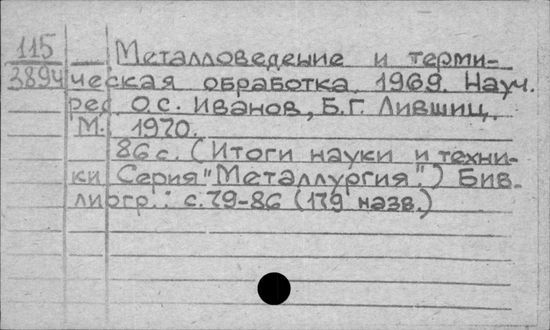 115
3894
— Металловедение и терми-
ческая обработка. 1969. Науч.
ред. О.С. Иванов, Б.Г. Лившиц.
М., 1970.
86 с. (Итоги науки и техни-
ки Серия "Металлургия".) Биб-
лиогр.: с. 79-86 (179 назв.)